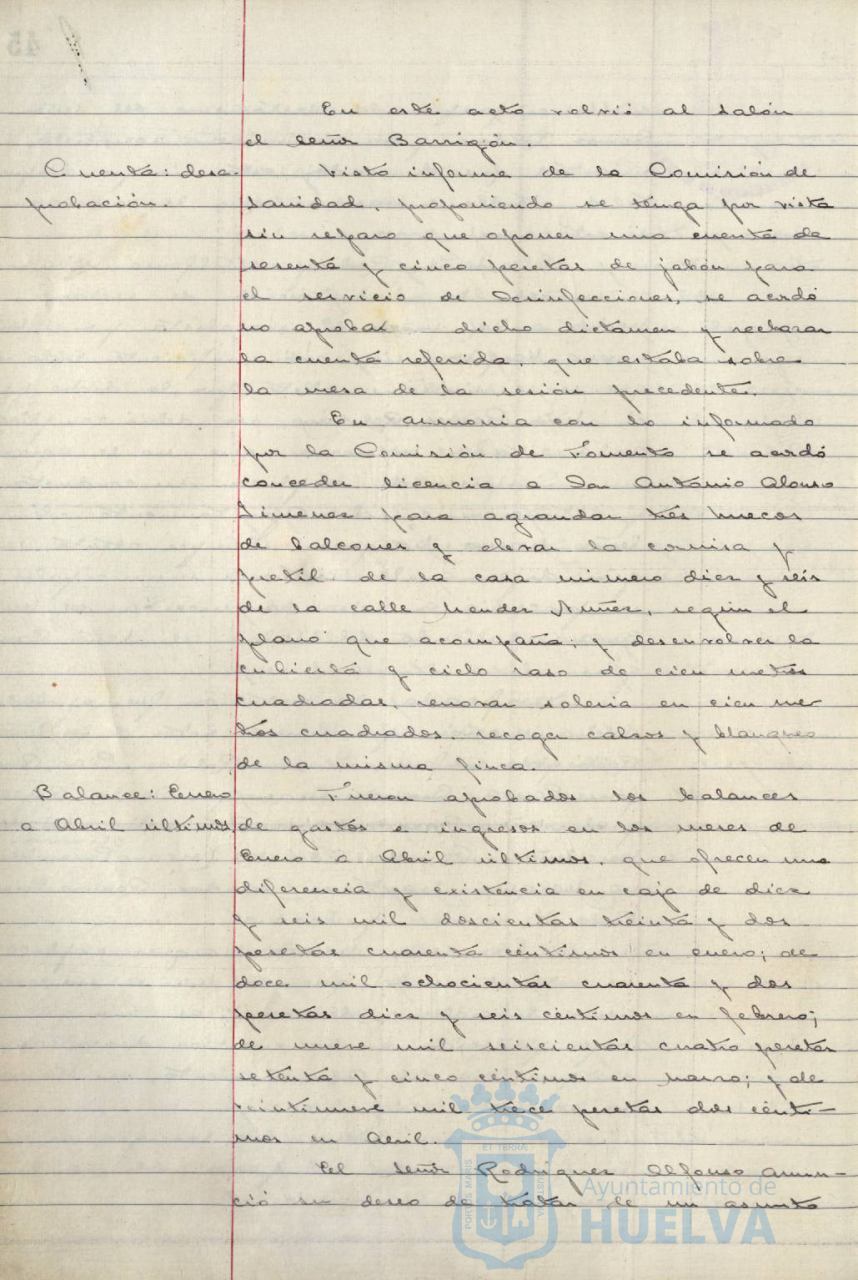 En este acto volvió al salón
el señor Barrigón.
Cuenta: desa-
probación.
Visto informe de la Comisión de
Sanidad, proponiendo se tenga por vista
sin reparo que oponer una cuenta de
sesenta y cinco pesetas de jabón para
el servicio de Desinfecciones, se acordó
no aprobar dicho dictamen y rechazar
la cuenta referida, que estaba sobre
la mesa de la sesión precedente.
En armonia con lo informado
por la Comisión de Fomento se acordó
conceder licencia a Don Antonio Alonso
Jimenez para agrandar tres huecos
de balcones y elevar la cornisa y
pretil de la casa número diez y seis
de la calle Mendez Nuñez, según el
plano que acompaña; y desenvolver la
cubierta y cielo raso de cien metros
cuadrados, renovar soleria en cien me-
tros cuadrados, recoger calzos y blanqueo
de la misma finca.
Balance: Enero
a Abril últimos.
Fueron aprobados los balances
de gastos e ingresos en los meses de
Enero a Abril últimos, que ofrecen una
diferencia y existencia en caja de diez
y seis mil doscientas treinta y dos
pesetas cuarenta céntimos en enero; de
doce mil ochocientas cuarenta y dos
pesetas diez y seis céntimos en febrero;
de nueve mil seiscientas cuatro pesetas
setenta y cinco céntimos en marzo; y de
veintinueve mil trece pesetas dos cénti-
mos en Abril.
El señor Rodriguez Alfonso anun-
ció su deseo de tratar de un asunto
ET TERRÆ
PORTUS MARIS
Ayuntamiento de
HUELVA